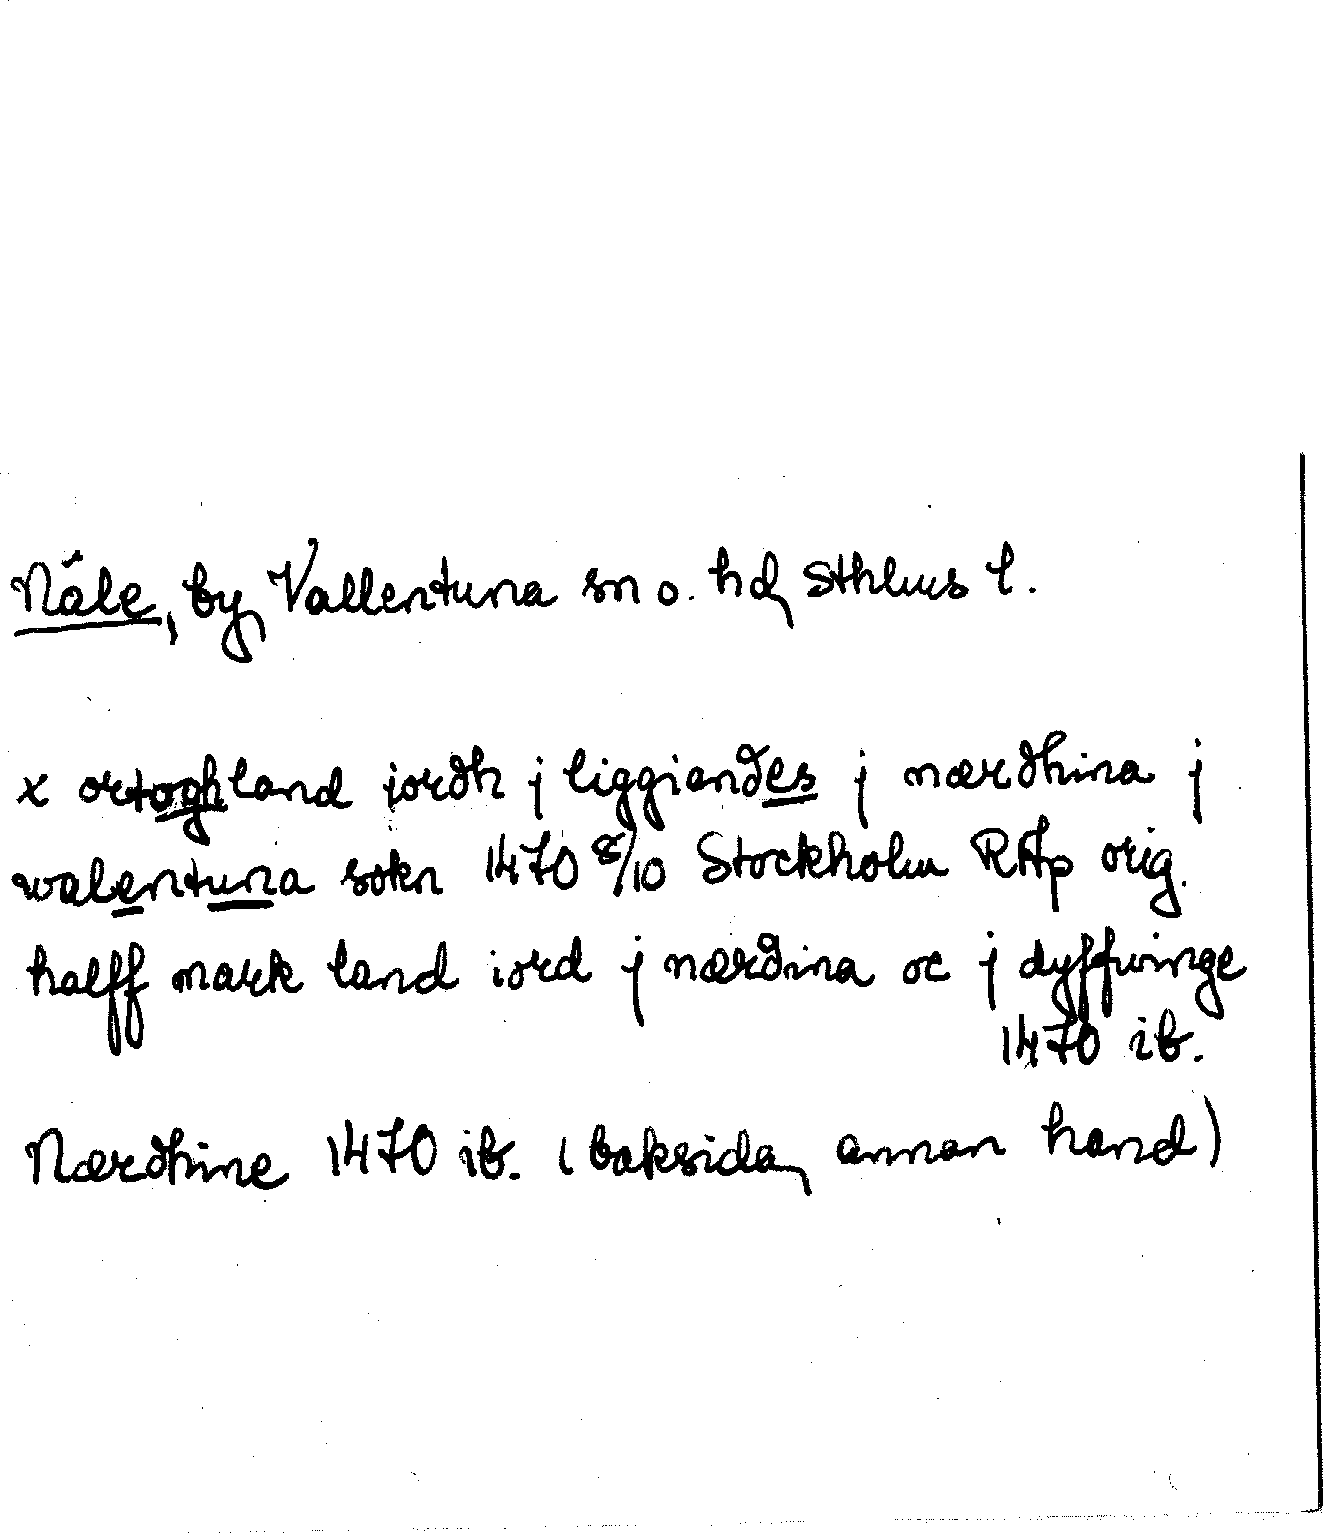 Nåle, by Vallentuna sn o. hd, Sthlms l.
x ortoghland jordh j liggiandes j nærdhina j
walentuna sokn 1470 8/10 Stockholm RAp orig.
halff mark land iord j nærdina oc j dyffwinge
1470 ib.
Nærdhine 1470 ib. (baksida, annan hand)